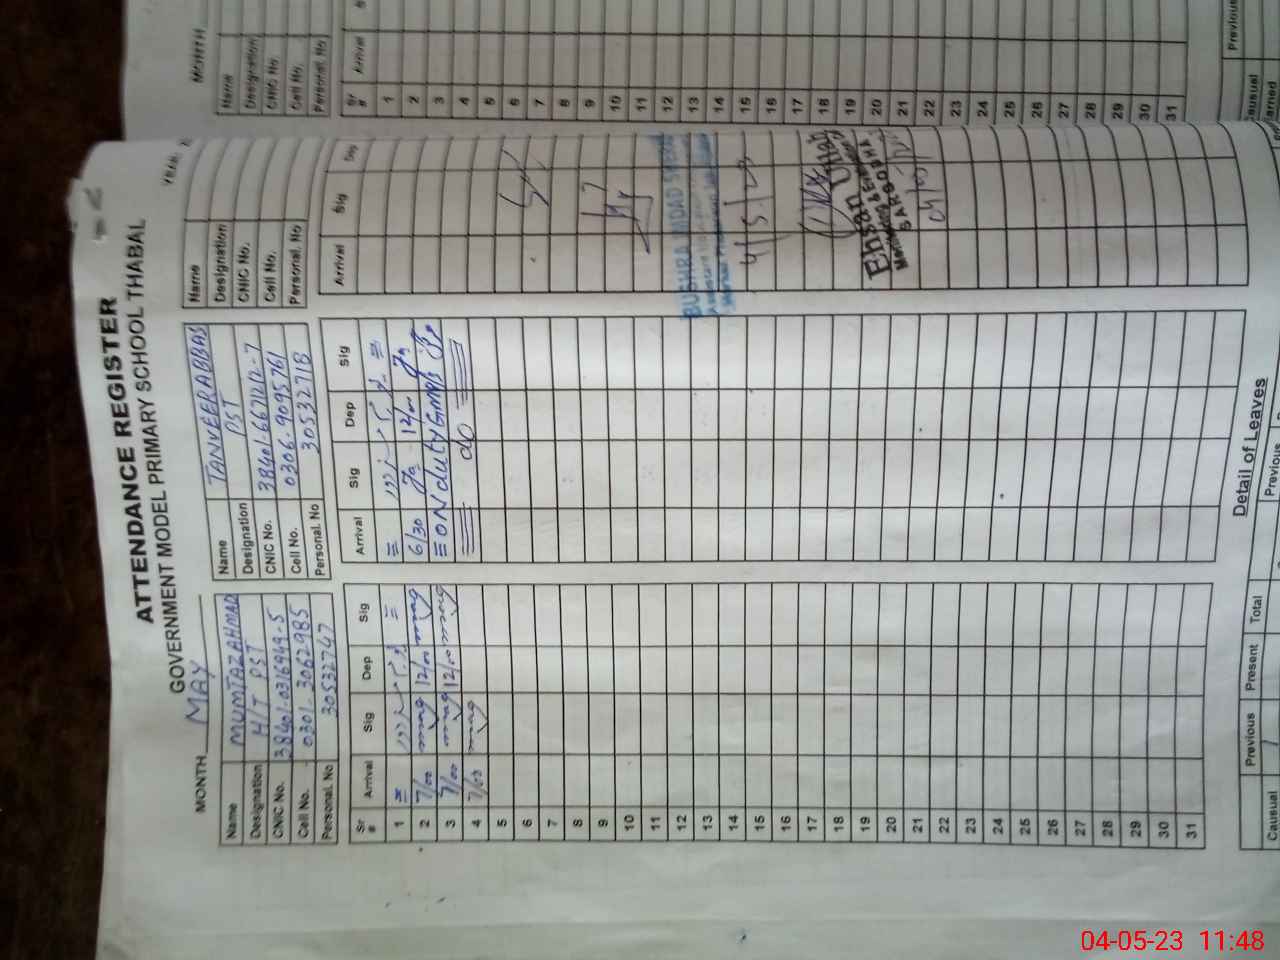 ATTENDANCE REGISTER
GOVERNMENT MODEL PRIMARY SCHOOL THABAL
MONTH MAY
Name MUMTAZ AHMAD
Designation H/T PST
CNIC No. 38401-0316949-5
Cell No. 0301-3062985
Personal. No 30532747
Name TANVEER ABBAS
Designation PST
CNIC No. 38401-6671212-7
Cell No. 0306-9095761
Personal. No 30532718
Name
Designation
CNIC No.
Cell No.
Personal. No
Sr # Arrival Sig Dep Sig Arrival Sig Dep Sig Arrival Sig
1
2 7/00 12/00 6/30 12/00
3 7/00 12/00 ON duty GMPS
4 7/00 do
5
6
7
8
9
10
11
12
13
14
15
16
17
18
19
20
21
22
23
24
25
26
27
28
29
30
31
BUSHRA
4/5/23
Ehsan
Monitoring &
Detail of Leaves
Previous Present Total Previous
Causal
MONTH
Name
Designation
CNIC No.
Cell No.
Personal. No
Sr # Arrival
1
2
3
4
5
6
7
8
9
10
11
12
13
14
15
16
17
18
19
20
21
22
23
24
25
26
27
28
29
30
31
Previous
04-05-23 11:48